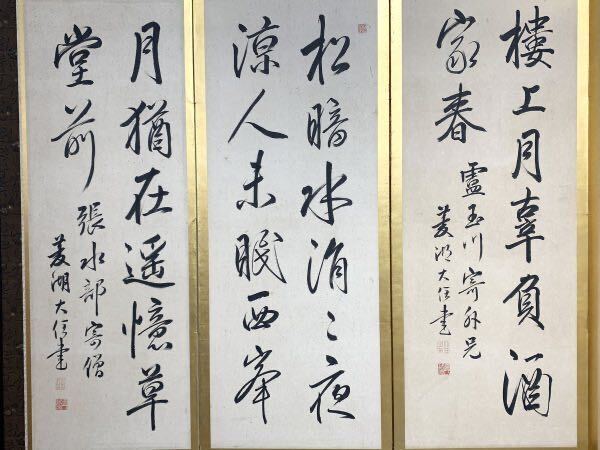 樓上月辜負酒
家春
盧玉川寄外兄
菱湖大任書
松暗水涓〻夜
涼人未眠西峯
月猶在遥憶草
堂前
張水部寄僧
菱湖大任書